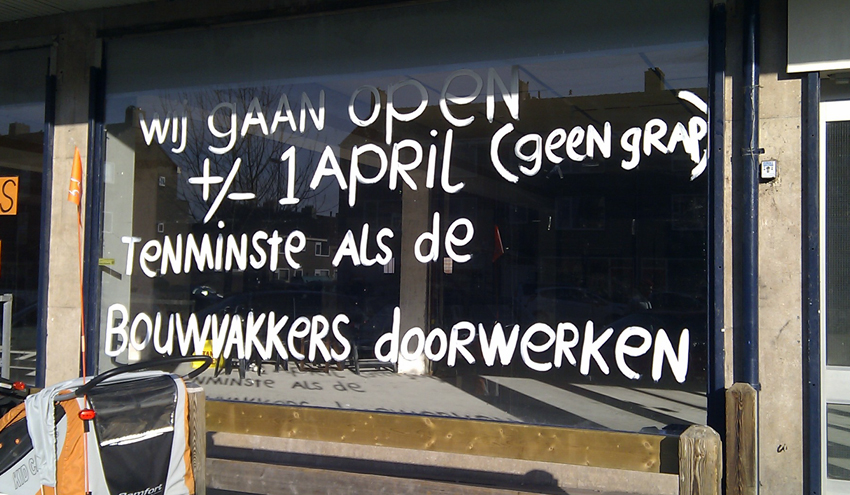 WIJ GAAN OPEN
+/- 1 APRIL (GEEN GRAP)
TENMINSTE ALS DE
BOUWVAKKERS DOORWERKEN
S
KID C
Comfort